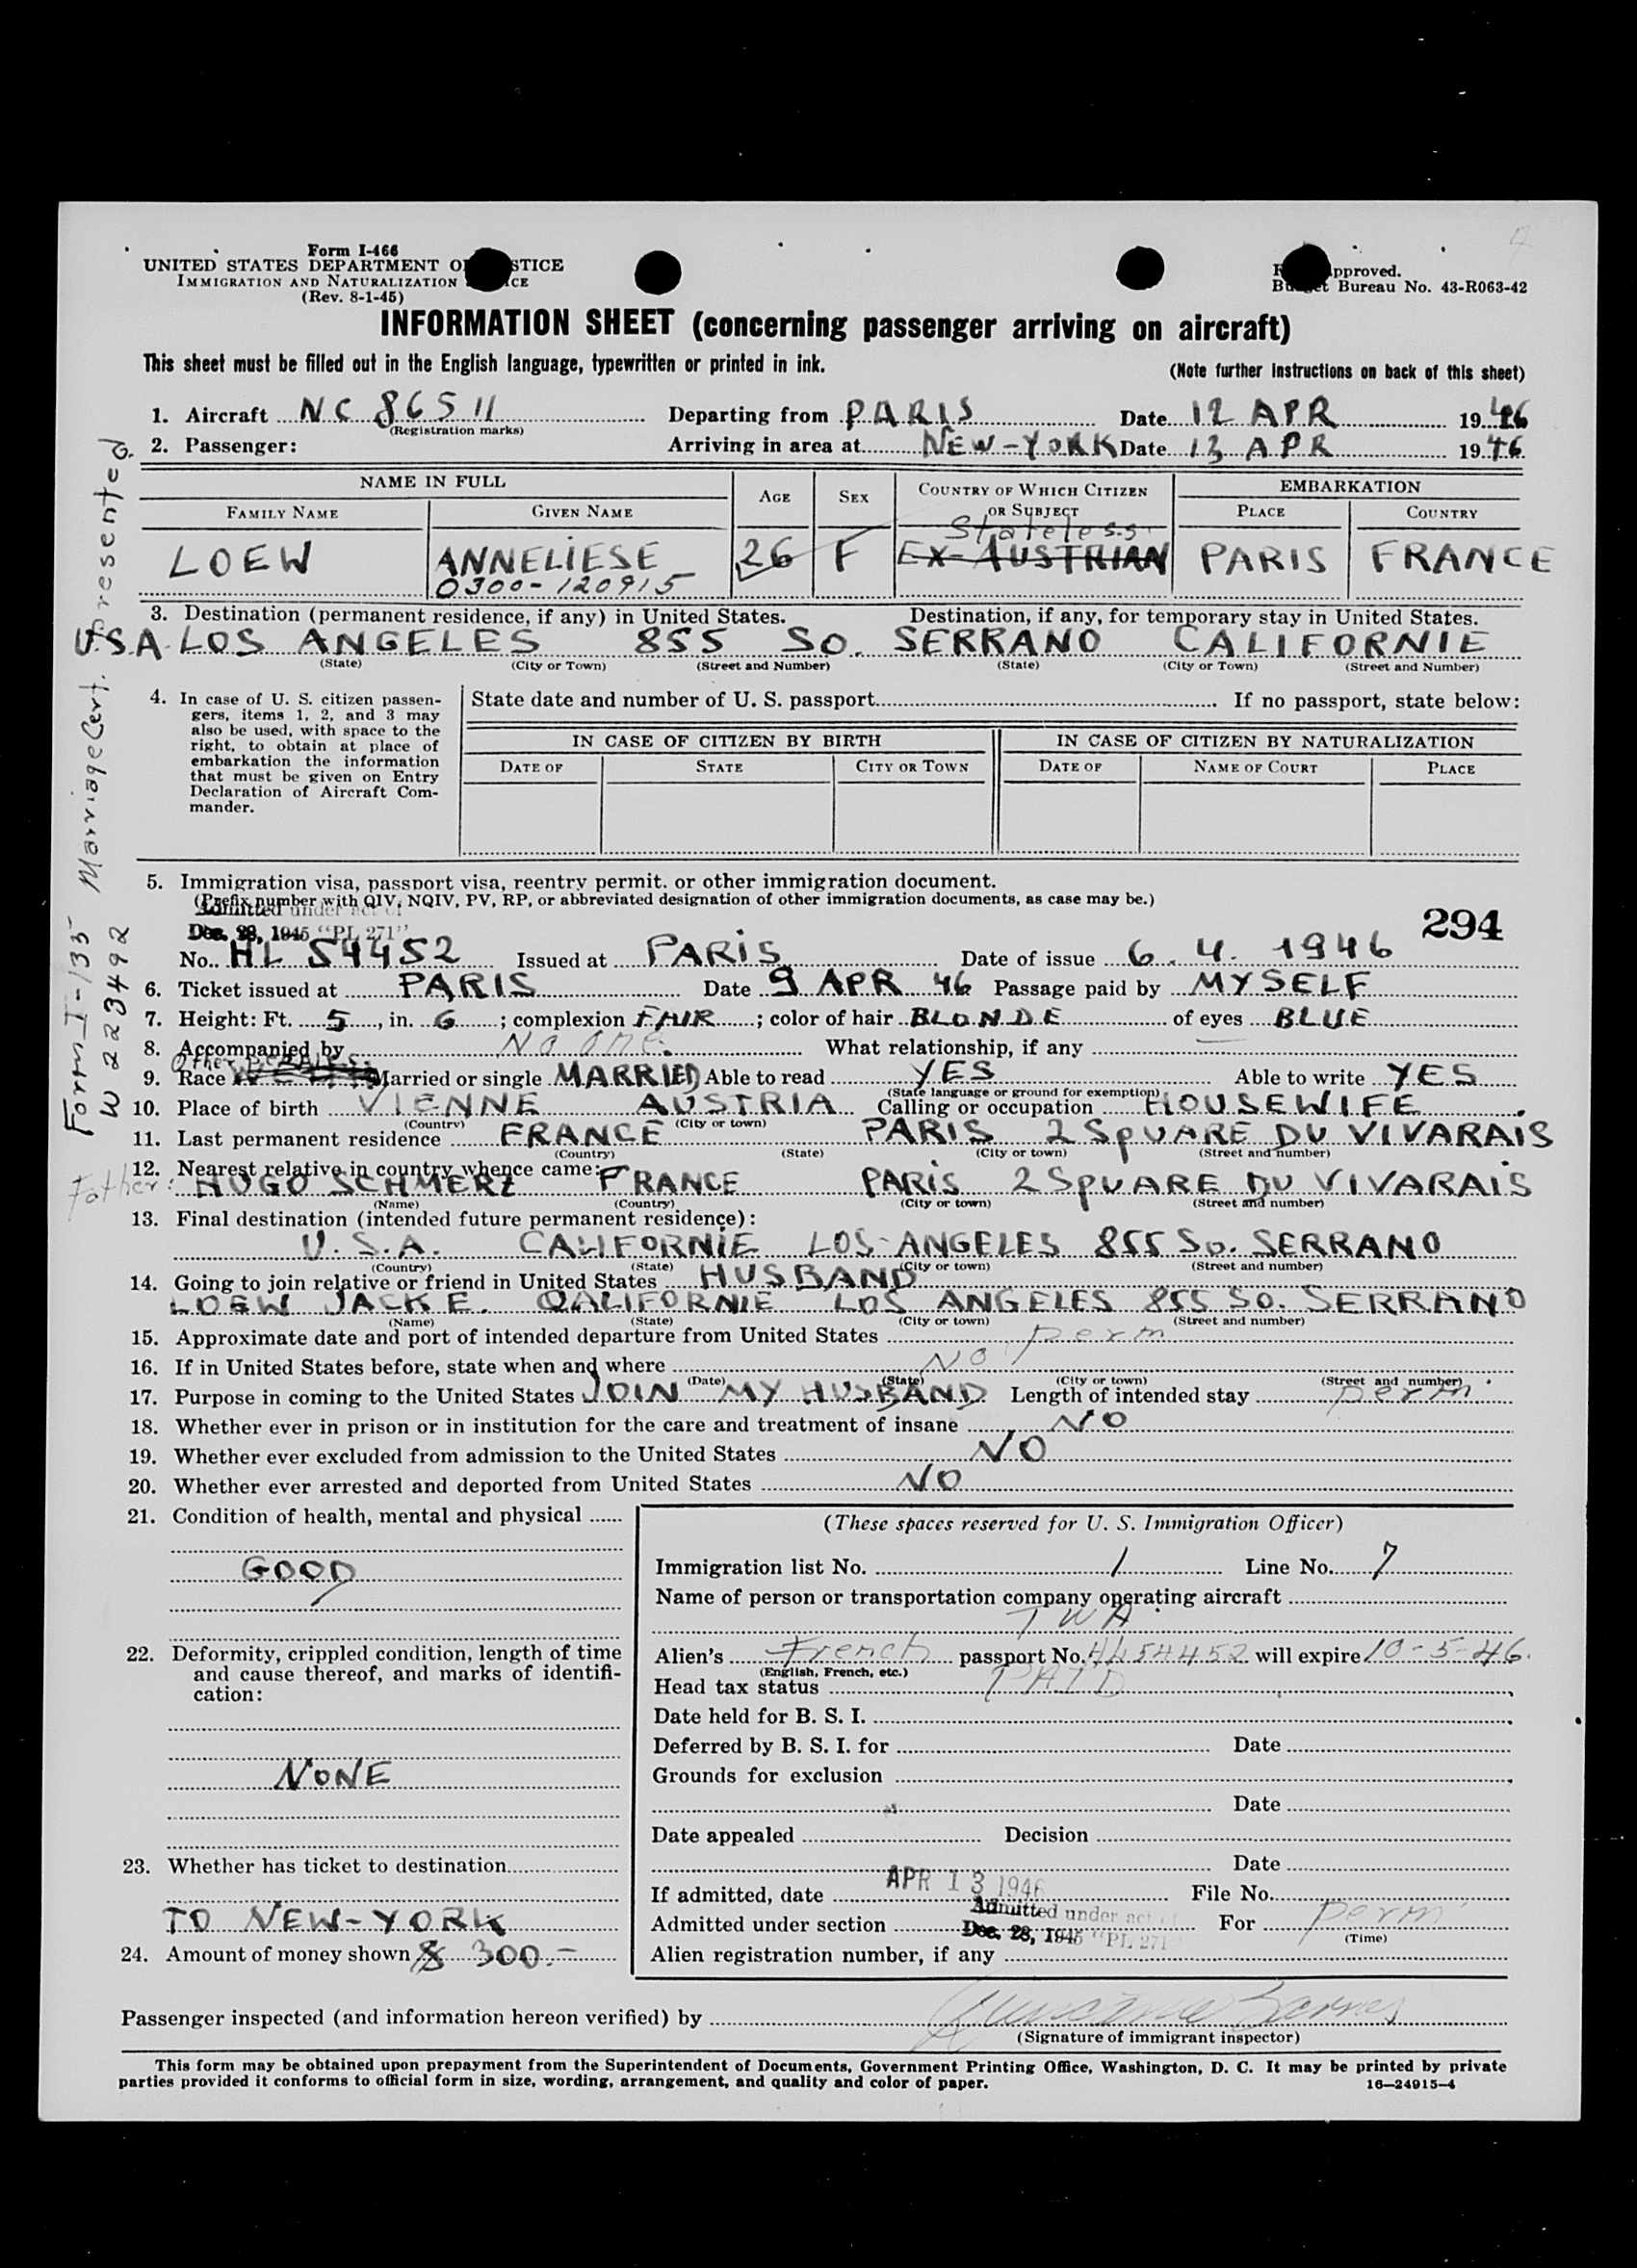 Form I-466
UNITED STATES DEPARTMENT OF JUSTICE
IMMIGRATION AND NATURALIZATION SERVICE
(Rev. 8-1-45)
Form Approved.
Budget Bureau No. 43-R063-42
INFORMATION SHEET (concerning passenger arriving on aircraft)
This sheet must be filled out in the English language, typewritten or printed in ink.
(Note further instructions on back of this sheet)
1. Aircraft NC 86511 Departing from PARIS Date 12 APR 1946
(Registration marks)
2. Passenger: Arriving in area at NEW-YORK Date 13 APR 1946
NAME IN FULL AGE SEX COUNTRY OF WHICH CITIZEN OR SUBJECT EMBARKATION
FAMILY NAME GIVEN NAME PLACE COUNTRY
Stateless
LOEW ANNELIESE 26 F EX-AUSTRIAN PARIS FRANCE
0300-120915
3. Destination (permanent residence, if any) in United States. Destination, if any, for temporary stay in United States.
U.S.A. LOS ANGELES 855 SO. SERRANO CALIFORNIE
(State) (City or Town) (Street and Number) (State) (City or Town) (Street and Number)
4. In case of U. S. citizen passen-
gers, items 1, 2, and 3 may
also be used, with space to the
right, to obtain at place of
embarkation the information
that must be given on Entry
Declaration of Aircraft Com-
mander.
State date and number of U. S. passport If no passport, state below:
IN CASE OF CITIZEN BY BIRTH IN CASE OF CITIZEN BY NATURALIZATION
DATE OF STATE CITY OR TOWN DATE OF NAME OF COURT PLACE
Form I-135 Marriage Cert. presented.
W 223492
5. Immigration visa, passport visa, reentry permit, or other immigration document.
(Prefix number with QIV, NQIV, PV, RP, or abbreviated designation of other immigration documents, as case may be.)
Admitted under act of
Dec. 28, 1945 "PL 271"
294
No. HL 54452 Issued at PARIS Date of issue 6. 4. 1946
6. Ticket issued at PARIS Date 9 APR 46 Passage paid by MYSELF
7. Height: Ft. 5, in. 6; complexion FAIR; color of hair BLONDE of eyes BLUE
8. Accompanied by No one. What relationship, if any —
Other
9. Race Married or single MARRIED Able to read YES Able to write YES
(State language or ground for exemption)
10. Place of birth VIENNE AUSTRIA Calling or occupation HOUSEWIFE
(Country) (City or town)
11. Last permanent residence FRANCE PARIS 2 SQUARE DU VIVARAIS
(Country) (State) (City or town) (Street and number)
12. Nearest relative in country whence came:
Father: HUGO SCHMERZ FRANCE PARIS 2 SQUARE DU VIVARAIS
(Name) (Country) (City or town) (Street and number)
13. Final destination (intended future permanent residence):
U.S.A. CALIFORNIE LOS-ANGELES 855 So. SERRANO
(Country) (State) (City or town) (Street and number)
14. Going to join relative or friend in United States HUSBAND
LOEW JACK E. CALIFORNIE LOS ANGELES 855 SO. SERRANO
(Name) (State) (City or town) (Street and number)
15. Approximate date and port of intended departure from United States perm
16. If in United States before, state when and where NO
(Date) (State) (City or town) (Street and number)
17. Purpose in coming to the United States JOIN MY HUSBAND Length of intended stay perm.
18. Whether ever in prison or in institution for the care and treatment of insane NO
19. Whether ever excluded from admission to the United States NO
20. Whether ever arrested and deported from United States NO
21. Condition of health, mental and physical
GOOD
22. Deformity, crippled condition, length of time
and cause thereof, and marks of identifi-
cation:
NONE
23. Whether has ticket to destination
TO NEW-YORK
24. Amount of money shown $ 300.-
(These spaces reserved for U. S. Immigration Officer)
Immigration list No. 1 Line No. 7
Name of person or transportation company operating aircraft
TWA
Alien's French passport No. HL54452 will expire 10-5-46.
(English, French, etc.)
Head tax status PAID
Date held for B. S. I.
Deferred by B. S. I. for Date
Grounds for exclusion
Date
Date appealed Decision
Date
If admitted, date APR 13 1946 File No.
Admitted under section Admitted under act of Dec. 28, 1945 "PL 271" For perm
(Time)
Alien registration number, if any
Passenger inspected (and information hereon verified) by
(Signature of immigrant inspector)
This form may be obtained upon prepayment from the Superintendent of Documents, Government Printing Office, Washington, D. C. It may be printed by private
parties provided it conforms to official form in size, wording, arrangement, and quality and color of paper.
16—24915-4